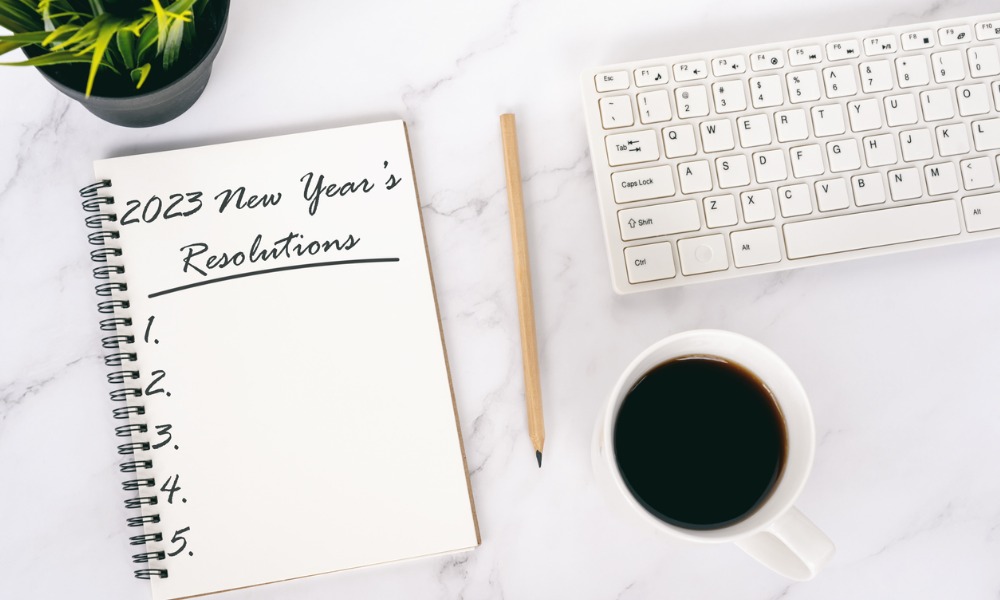 2023 New Year's
Resolutions
1.
2.
3.
4.
5.
Esc F1 F2 F3 F4 F5 F6 F7 F8 F9 F10
! 1 @ 2 # 3 $ 4 % 5 ^ 6 & 7 * 8 ( 9 ) 0
Tab Q W E R T Y U I O
Caps Lock A S D F G H J K L
Shift Z X C V B N M < ,
Ctrl Alt Alt